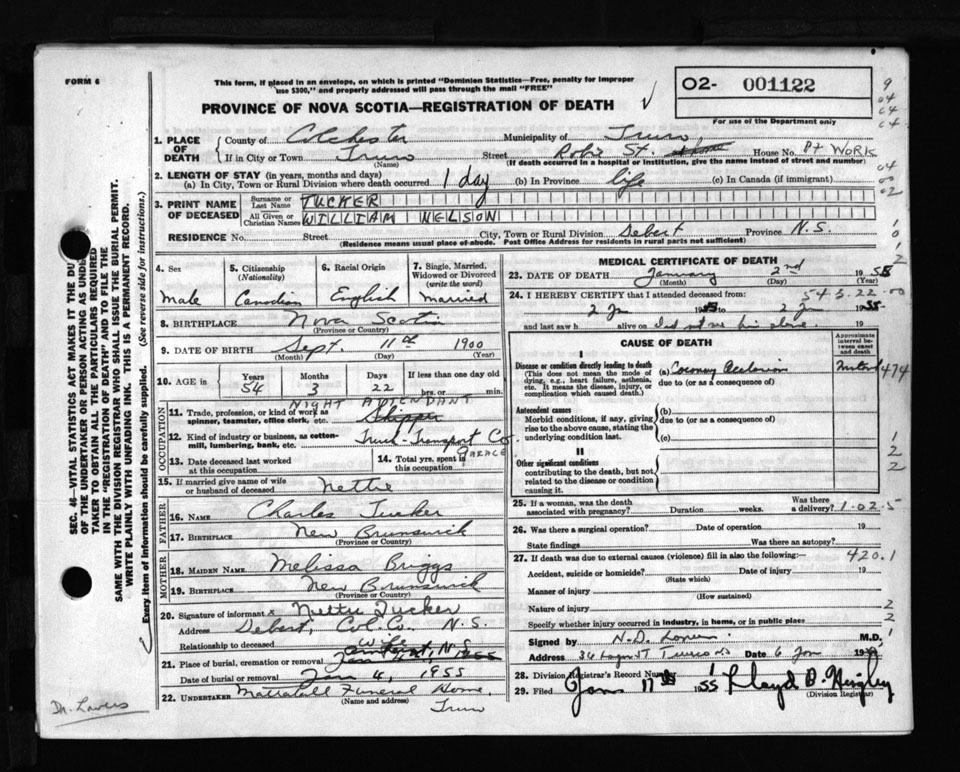 FORM 6
This form, if placed in an envelope, on which is printed "Dominion Statistics—Free, penalty for improper
use $300," and properly addressed will pass through the mail "FREE"
PROVINCE OF NOVA SCOTIA—REGISTRATION OF DEATH
O2- 001122
For use of the Department only
9
04
04
04
02
1. PLACE OF DEATH
County of Colchester Municipality of Truro
If in City or Town Truro Street Robie St. House No. At WORK
(Name) (If death occurred in a hospital or institution, give the name instead of street and number)
2. LENGTH OF STAY (in years, months and days)
(a) In City, Town or Rural Division where death occurred 1 day (b) In Province life (c) In Canada (if immigrant)
3. PRINT NAME OF DECEASED
Surname or Last Name TUCKER
All Given or Christian Names WILLIAM NELSON
RESIDENCE No. Street City, Town or Rural Division Debert Province N.S.
(Residence means usual place of abode. Post Office Address for residents in rural parts not sufficient)
4. Sex
Male
5. Citizenship
(Nationality)
Canadian
6. Racial Origin
English
7. Single, Married, Widowed or Divorced
(write the word)
Married
8. BIRTHPLACE Nova Scotia
(Province or Country)
9. DATE OF BIRTH Sept. 11th 1900
(Month) (Day) (Year)
10. AGE in Years Months Days If less than one day old
54 3 22 hrs. or min.
OCCUPATION
NIGHT ATTENDANT
11. Trade, profession, or kind of work as spinner, teamster, office clerk, etc. Skipper
12. Kind of industry or business, as cotton-mill, lumbering, bank, etc. Truck-Transport Co.
GARAGE
13. Date deceased last worked at this occupation
14. Total yrs. spent in this occupation
15. If married give name of wife or husband of deceased Nettie
FATHER
16. NAME Charles Tucker
17. BIRTHPLACE New Brunswick
(Province or Country)
MOTHER
18. MAIDEN NAME Melissa Briggs
19. BIRTHPLACE New Brunswick
(Province or Country)
20. Signature of informant x Nettie Tucker
Address Debert, Col. Co. N.S.
Relationship to deceased wife
21. Place of burial, cremation or removal
Date of burial or removal Jan 4, 1955
22. UNDERTAKER Mattatall Funeral Home,
(Name and address) Truro
MEDICAL CERTIFICATE OF DEATH
23. DATE OF DEATH January 2nd 1955
(Month) (Day)
543.22.00
24. I HEREBY CERTIFY that I attended deceased from:
2 Jan 1955 to 2 Jan 1955
and last saw h alive on Did not see him alive 19
CAUSE OF DEATH
Approximate interval between onset and death
I
Disease or condition directly leading to death
(This does not mean the mode of dying, e.g., heart failure, asthenia, etc. It means the disease, injury, or complication which caused death.)
(a) Coronary Occlusion
474
due to (or as a consequence of)
Antecedent causes
Morbid conditions, if any, giving rise to the above cause, stating the underlying condition last.
(b)
due to (or as a consequence of)
(c)
II
Other significant conditions
contributing to the death, but not related to the disease or condition causing it.
1
2
2
25. If a woman, was the death associated with pregnancy? Duration weeks. Was there a delivery?
1-02-5
26. Was there a surgical operation? Date of operation 19
State findings Was there an autopsy?
27. If death was due to external causes (violence) fill in also the following:—
420.1
Accident, suicide or homicide? Date of injury 19
(State which)
Manner of injury
(How sustained)
Nature of injury
Specify whether injury occurred in industry, in home, or in public place
2
2
1
Signed by M.D.
Address Truro NS Date 6 Jan 19
28. Division Registrar's Record Number
29. Filed Jan 17th 1955
(Division Registrar)
SEC. 46—VITAL STATISTICS ACT MAKES IT THE DU
OF THE UNDERTAKER OR PERSON ACTING AS UNDE
TAKER TO OBTAIN ALL THE PARTICULARS REQUIRED
IN THE "REGISTRATION OF DEATH" AND TO FILE THE
SAME WITH THE DIVISION REGISTRAR WHO SHALL ISSUE THE BURIAL PERMIT.
WRITE PLAINLY WITH UNFADING INK. THIS IS A PERMANENT RECORD.
Every item of information should be carefully supplied. (See reverse side for instructions.)
Dr. Lavers